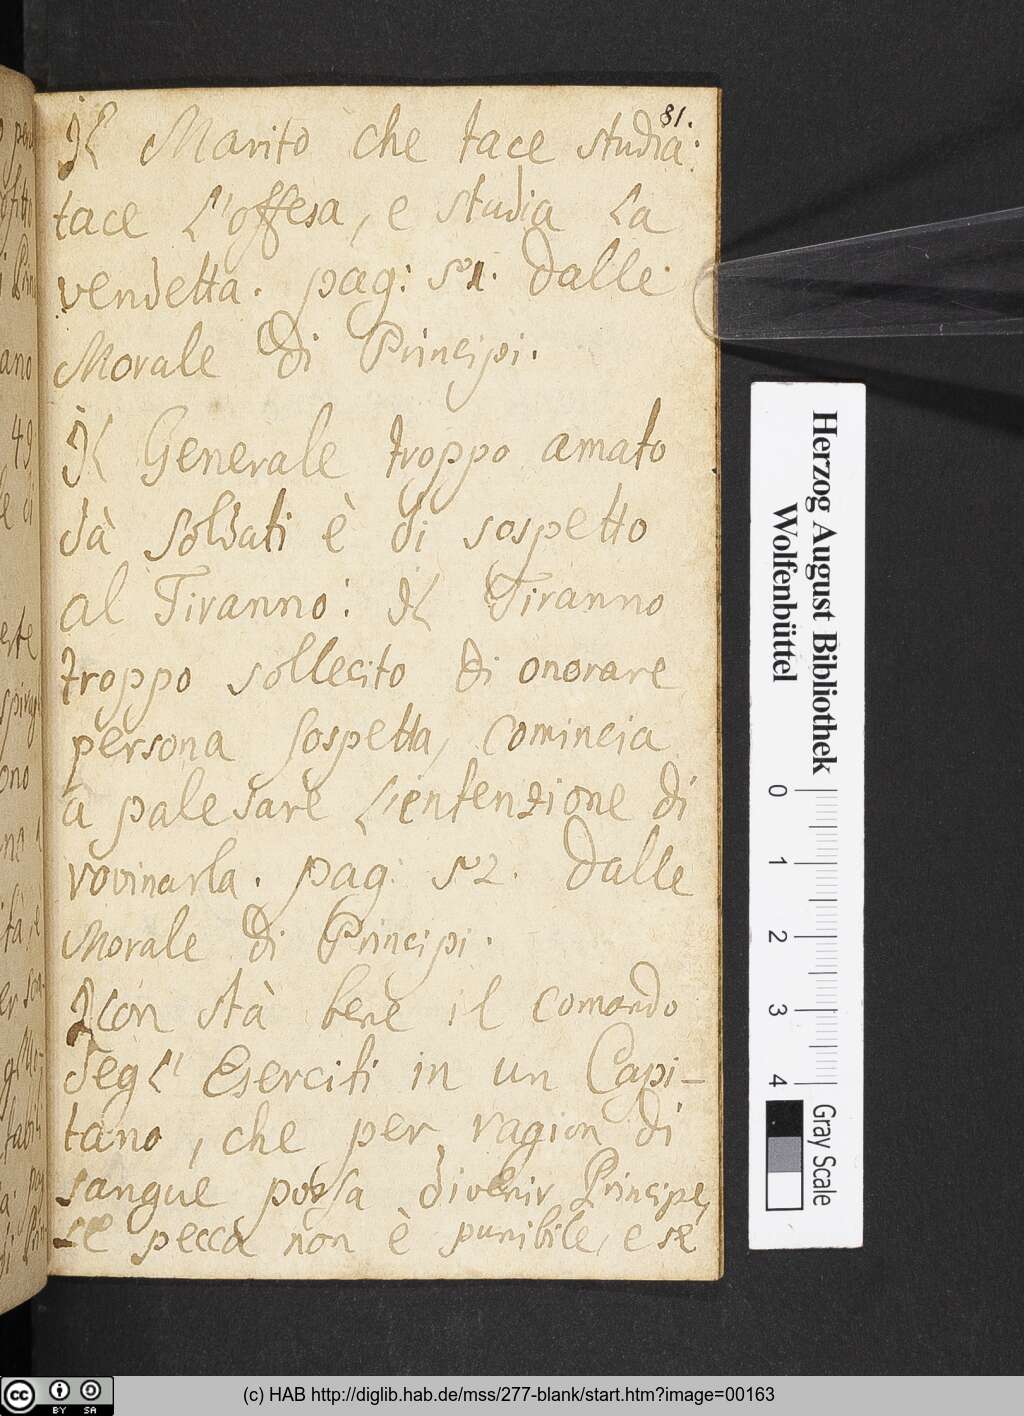 81.
Il Marito che tace studia:
tace l'offesa, e studia la
vendetta. pag: 51. Dalle
Morale di Principi.
Il Generale troppo amato
dà Soldati è di sospetto
al Tiranno: Il Tiranno
troppo sollecito di onorare
persona sospetta, comincia
a palesare l'entenzione di
rovinarla. pag: 52. Dalle
Morale di Principi.
Non stà bene il comando
degl' Eserciti in un Capi-
tano, che per ragion di
sangue possa divenir Principe,
se pecca non è punibile, e se
49
Herzog August Bibliothek
Wolfenbüttel
0 1 2 3 4
Gray Scale
cc BY SA
(c) HAB http://diglib.hab.de/mss/277-blank/start.htm?image=00163